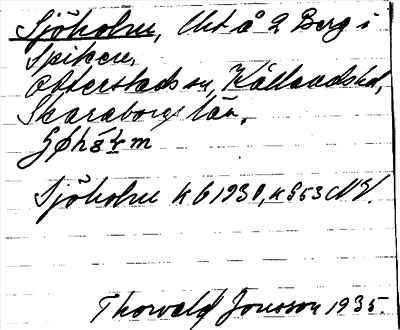 Sjöholm, Utå 2 Berg i
Spiken,
Otterstads sn, Kållands hd,
Skaraborgs län.
m
Sjöholm K61930, K953 NV.
Thorvald Jonsson 1935.